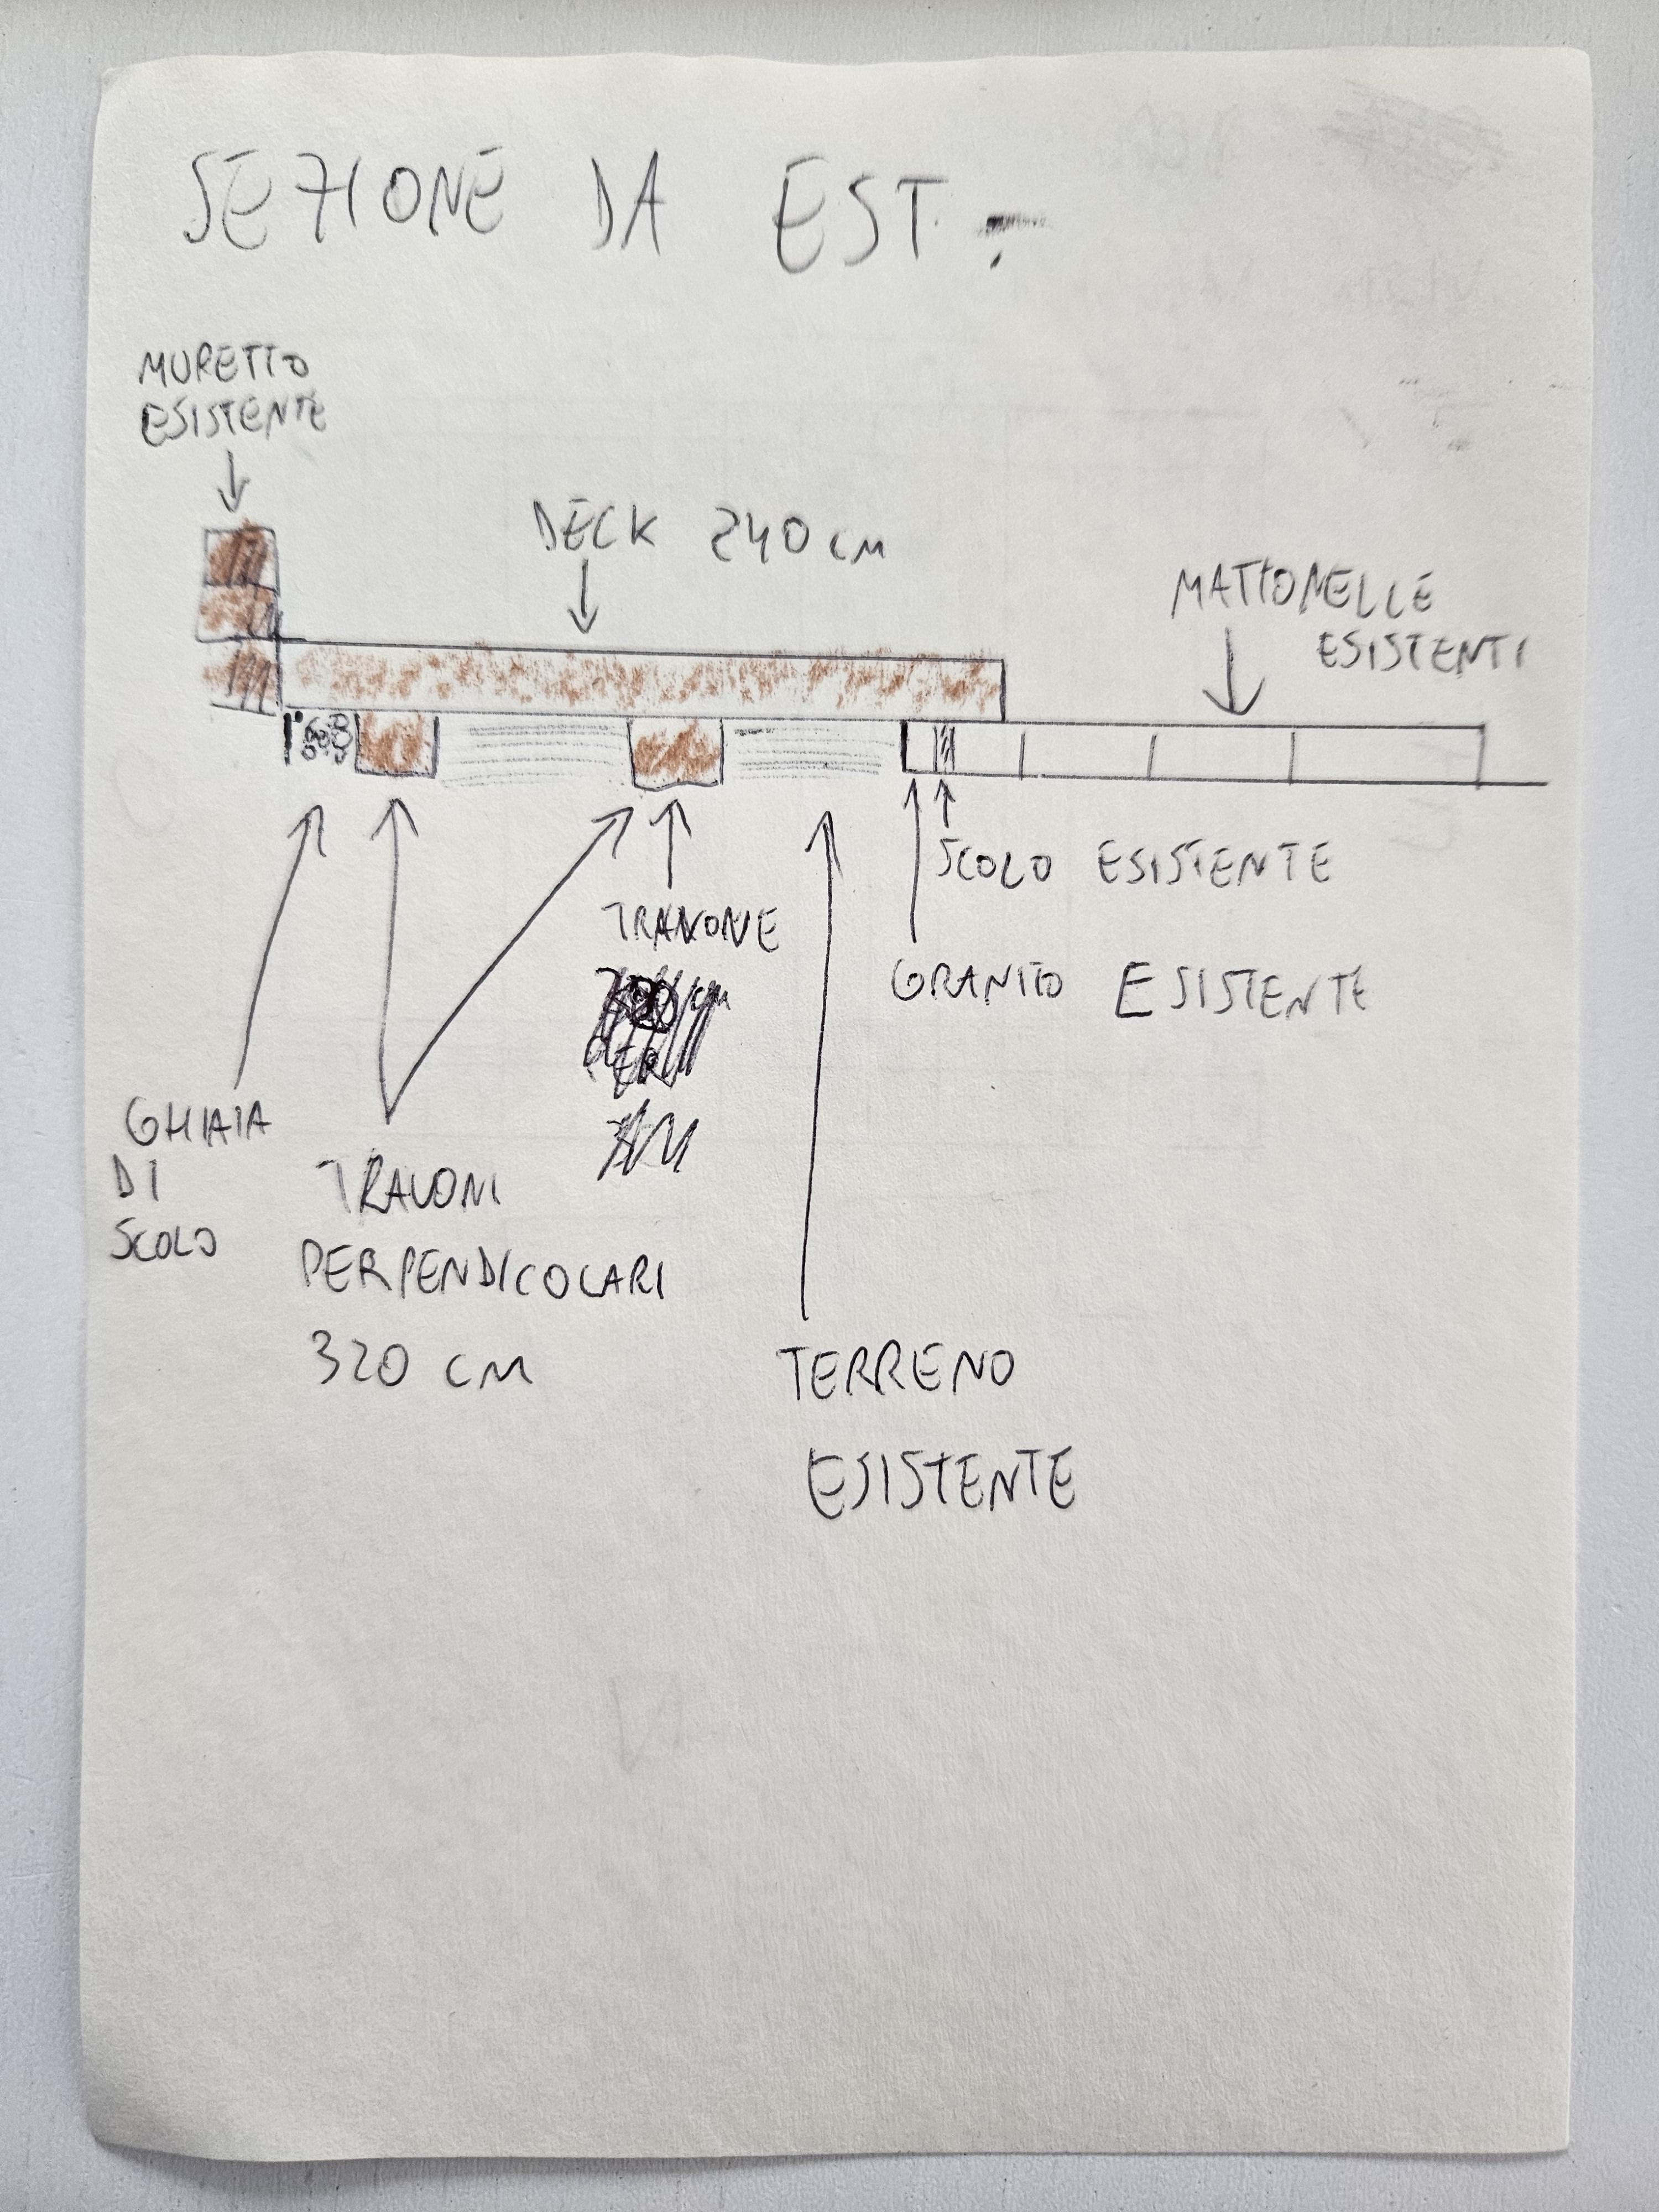 SEZIONE DA EST
MURETTO
ESISTENTE
DECK 240 CM
MATTONELLE
ESISTENTI
SCOLO ESISTENTE
TRAVONE
GRANITO ESISTENTE
GHIAIA
DI
SCOLO
TRAVONI
PERPENDICOLARI
320 CM
TERRENO
ESISTENTE